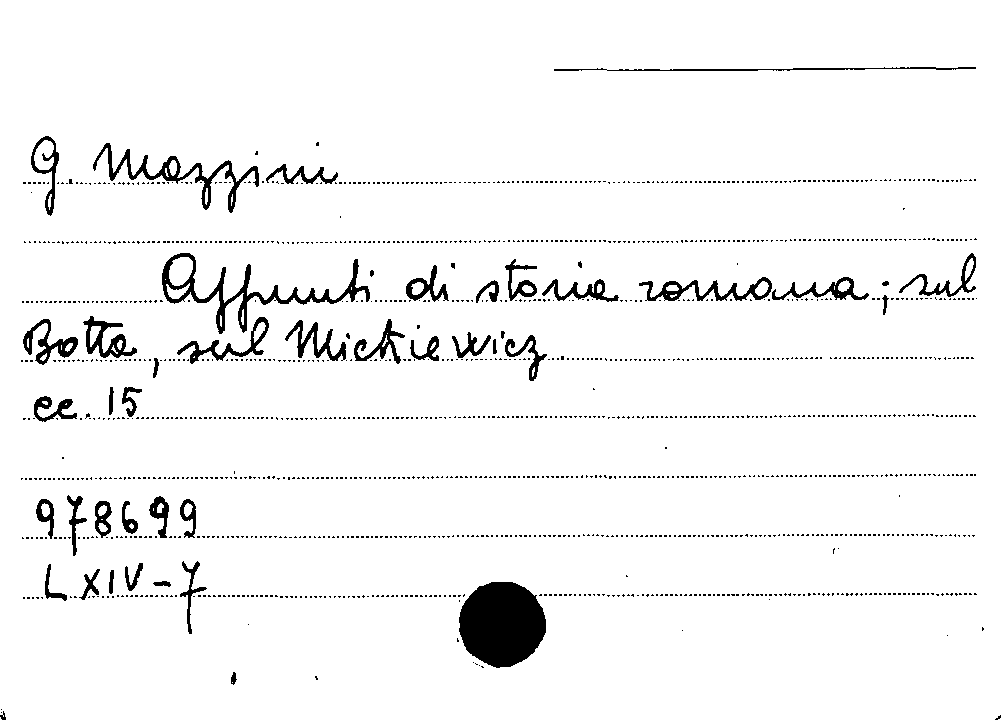 G. Mazzini
Appunti di storia romana; sul
Botta, sul Mickiewicz.
cc. 15
978699
L XIV-7